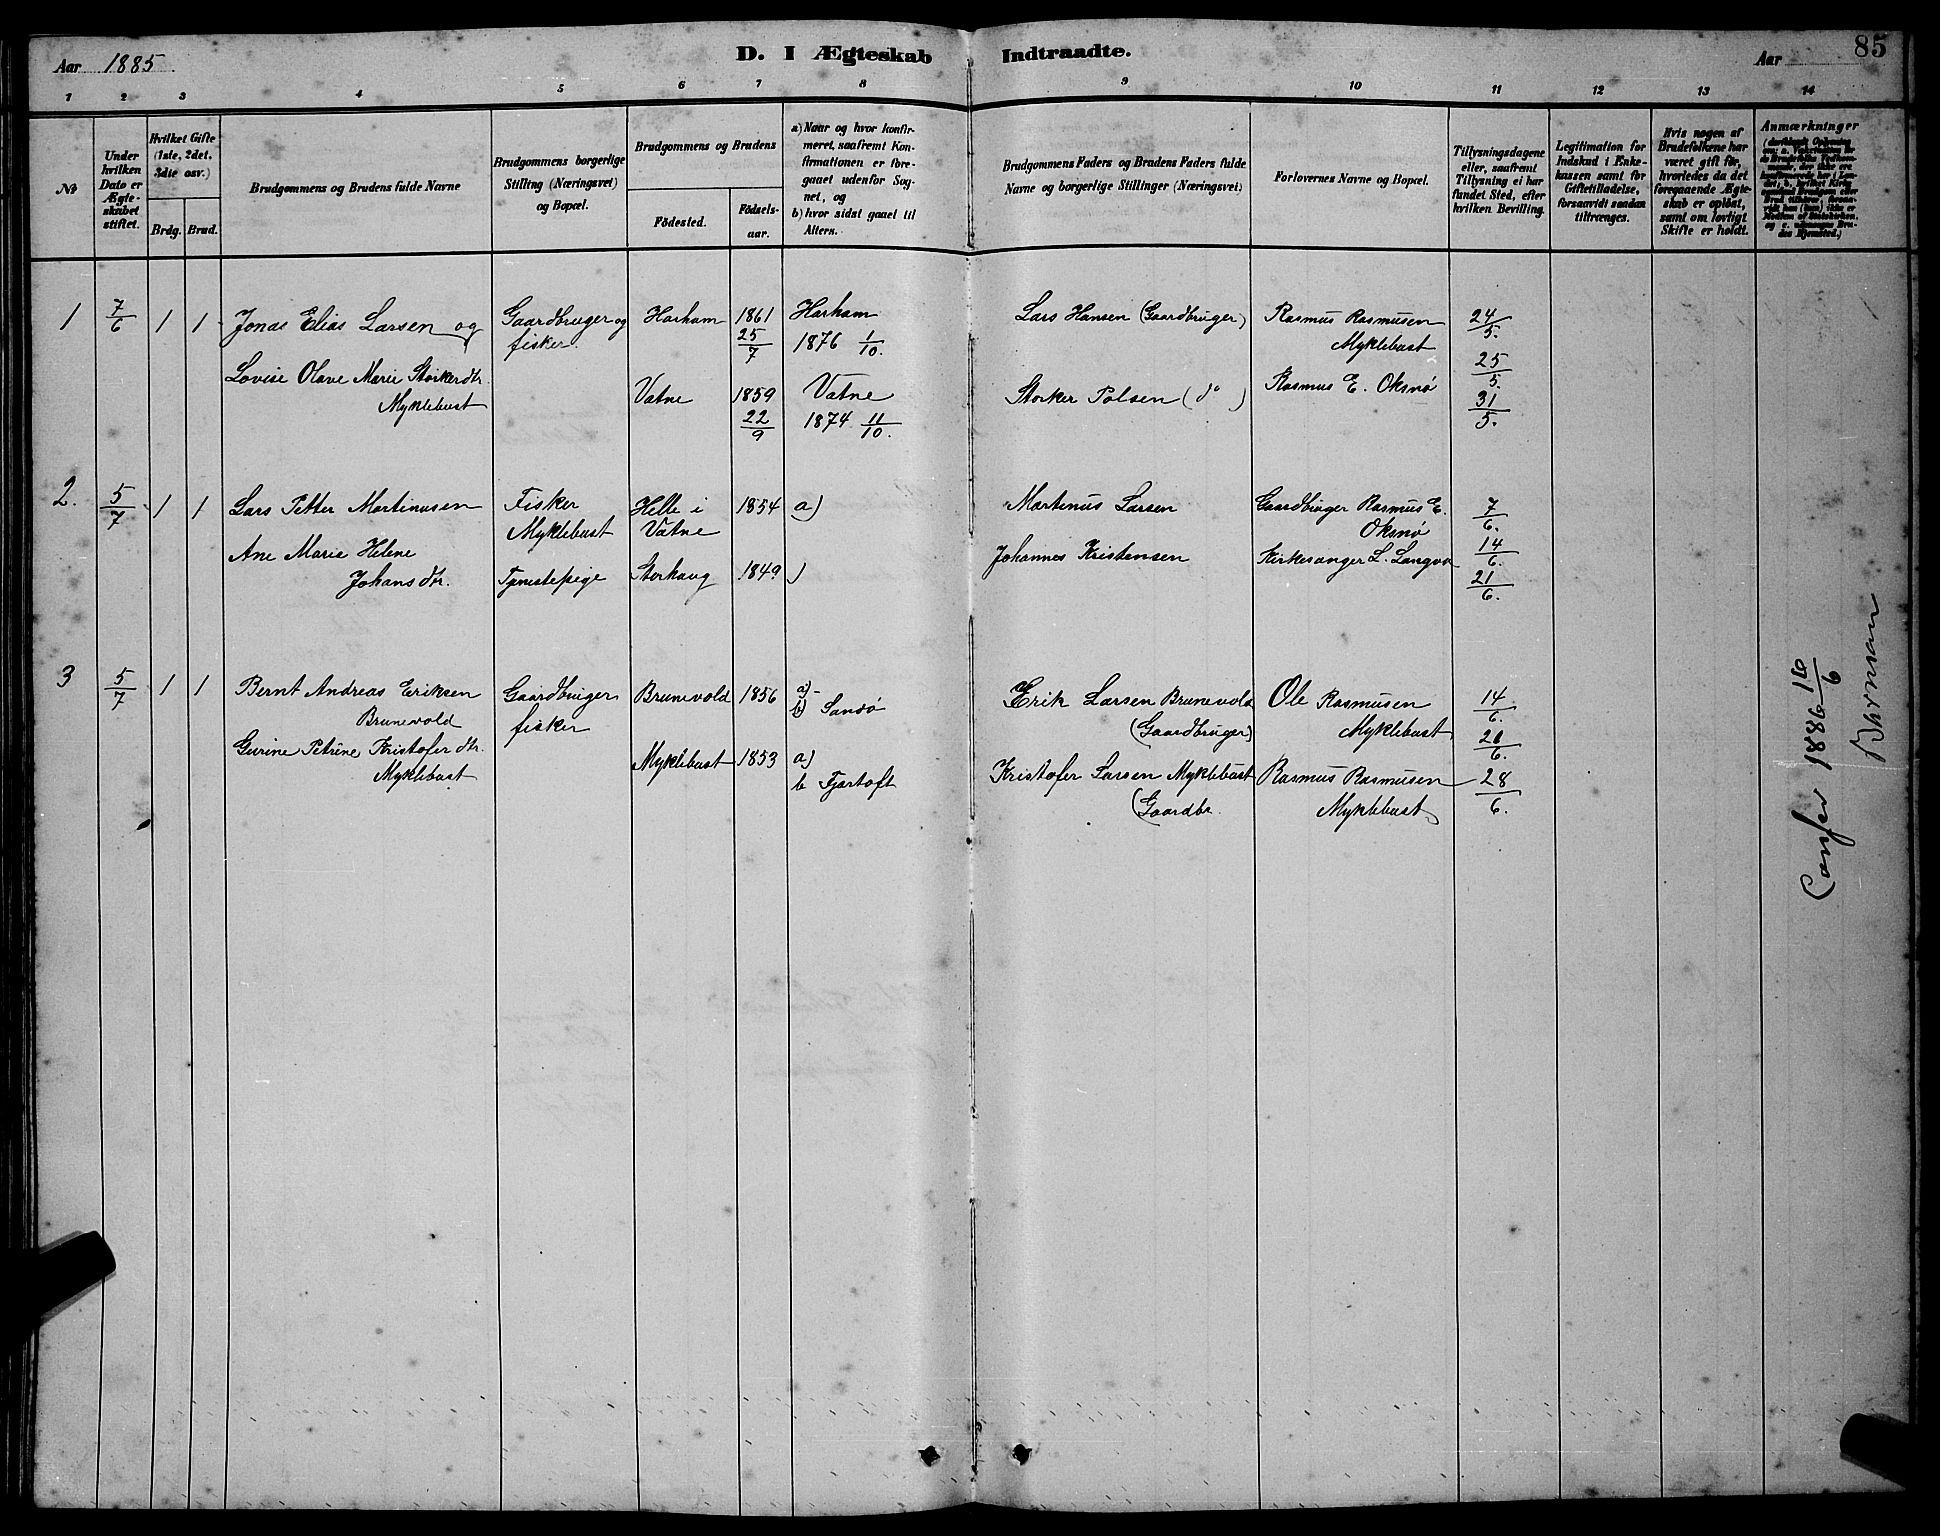 Aar 1885.
D. I Ægteskab Indtraadte.
Aar
85
1 2 3 4 5 6 7 8 9 10 11 12 13 14
No
Under hvilken Dato er Ægteskabet stiftet.
Hvilket Gifte (1ste, 2det, 3die osv.)
Brdg. Brud.
Brudgommens og Brudens fulde Navne
Brudgommens borgerlige Stilling (Næringsvei) og Bopæl.
Brudgommens og Brudens
Födested.
Födsels-aar.
a) Naar og hvor konfirmeret, saafremt Konfirmationen er foregaaet udenfor Sognet, og
b) hvor sidst gaaet til Alters.
Brudgommens Faders og Brudens Faders fulde Navne og borgerlige Stillinger (Næringsvei)
Forlovernes Navne og Bopæl.
Tillysningsdagene eller, saafremt Tillysning ei har fundet Sted, efter hvilken Bevilling.
Legitimation for Indskud i Enkekassen samt for Giftetilladelse, forsaavidt saadan tiltrænges.
Hvis nogen af Brudefolkene har været gift för, hvorledes da det foregaaende Ægteskab er oplöst, samt om lovligt Skifte er holdt.
Anmærkninger
1
7/6
1 1
Jonas Elias Larsen og
Lovise Olave Marie Storkerdtr.
Myklebust
Gaardbruger og
fisker.
Harham 1861
25/7
Harham
1876 1/10.
Vatne 1859
22/9
Vatne
1874 11/10.
Lars Hansen (Gaardbruger)
Storker Polsen (do)
Rasmus Rasmusen
Myklebust
Rasmus E. Oksnø
24/5.
25/5.
31/5.
2.
5/7
1 1
Lars Petter Martinusen
Ane Marie Helene
Johansdtr.
Fisker
Myklebust
Tjenestepige
Helle i
Vatne
1854 a)
Storhaug 1849 )
Martinus Larsen
Johannes Kristensen
Gaardbruger Rasmus E.
Oksnø
Kirkesanger L. Langva
7/6.
14/6.
21/6.
3
5/7
1 1
Bernt Andreas Eriksen
Brunevold
Gurine Petrine Kristofer dtr.
Myklebust
Gaardbruger
fisker
Brunevold 1856
a) -
b) Sandø
Myklebust 1853 a)
b Fjørtoft
Erik Larsen Brunevold
(Gaardbruger)
Kristofer Larsen Myklebust
(Gaardbr.
Ole Rasmusen
Myklebust
Rasmus Rasmusen
Myklebust
14/6.
21/6.
28/6.
Confer 1886 16/6